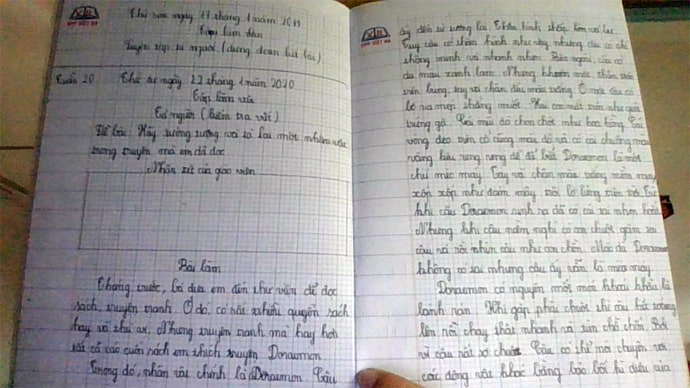 Thứ sáu ngày 17 tháng 1 năm 2019
Tập làm văn
Luyện tập tả người (dựng đoạn kết bài)
Tuần 20
Thứ tư ngày 22 tháng 1 năm 2020
Tập làm văn
Tả người (kiểm tra viết)
Đề bài: Hãy tưởng tượng và tả lại một nhân vật
trong truyện mà em đã đọc
Nhận xét của giáo viên
Bài làm
Tháng trước, bà đưa em đến thư viện để đọc
sách, truyện tranh. Ở đó, có rất nhiều quyển sách
hay và thú vị. Nhưng truyện tranh mà hay hơn
tất cả các cuốn sách em thích truyện Doraemon.
Trong đó, nhân vật chính là Doraemon. Cậu
ấy đến từ tương lai. Thân hình thấp lùn và
Tuy cậu có thân hình như vậy nhưng cậu có chí
thông minh và nhanh nhẹn. Bên ngoài, cậu có
da màu xanh lam. Nhưng khuôn mặt, thân
viên bụng, tay và chân đều màu trắng. Ở
ra mép thẳng muột. Hai con mắt tròn như quả
trứng gà. Cái mũi đỏ chon chót như hoa hồng. Cái
vòng đeo trên cổ cũng màu đỏ và có cái chuông màu
vàng kêu reng reng để đã biết Doraemon là một
chú mèo máy. Tay và chân màu trắng mềm mại
xốp xốp như đám mây trôi lơ lửng trên trời. Từ
khi cậu Doraemon sinh ra đã có cái tai nhọn hoắt
Nhưng khi cậu nằm nghỉ có con chuột gặm tai
cậu và rồi nhìn cậu như con chồn. Mặc dù Doraemon
không có tai nhưng cậu ấy vẫn là mèo máy.
Doraemon có nguyện một mọi khoái khẩu là
bánh rán. Khi gặp phải chuột thì cậu hốt hoảng
lên rồi chạy thật nhanh và tìm chỗ chốn. Bởi
vì cậu rất sợ chuột. Cậu có thể nói chuyện với
các động vật khác bằng bảo bối kì diệu của